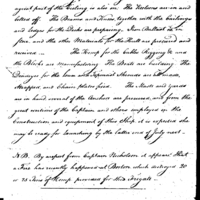 great part of the Ceiling is also in. The Stations are in and
letters off. The Beams and Knees, together with the Carlings
and Ledges for the Decks are preparing. Iron Ballast is in
and the other Materials for the Hull are procured and
received. The Hemp for the Cables, Rigging &c. and
the Blocks are Manufacturing. The Boats are building. The
Dunnage for the
and Chain plates forged. The Masts and yards
are in hand several of the Anchors are procured, and from the
great exertions of the Captain and others employed in the
Construction and equipment of this Ship, it is expected she
may be ready for launching by the latter end of July next.
N.B. By report from Captain Nicholson it appears that
a Fire has recently happened at Boston which destroyed 20
or 25 Tons of Hemp provided for this Frigate.